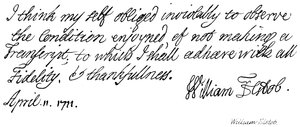 I think my self obliged inviolably to observe
the Condition enjoyned of not making a
Transcript, to which I shall adhære with all
Fidelity, & thankfullness.
William Elstob.
April. 11. 1711.
William Elstob.